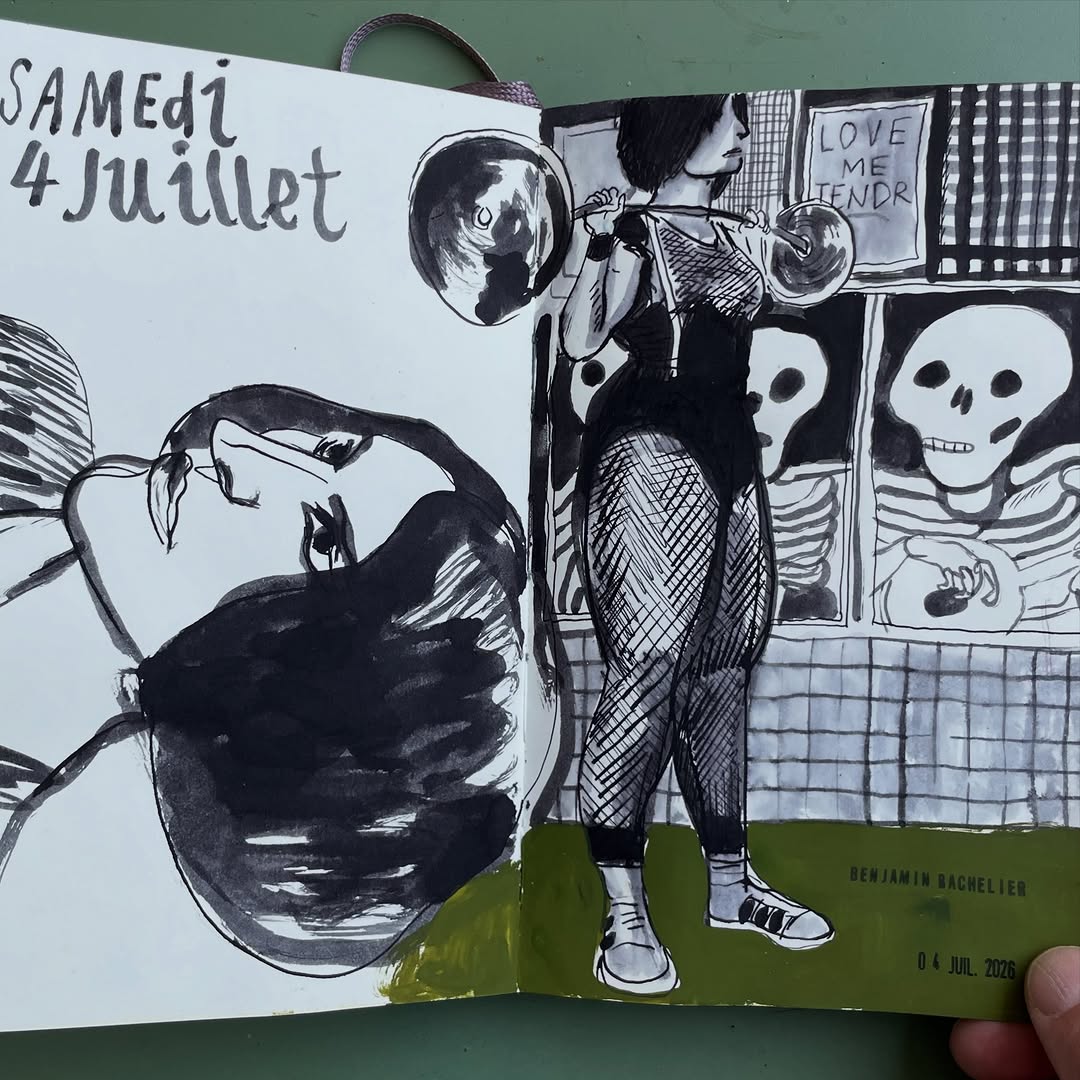 SAMEdi
4 Juillet
LOVE
ME
TENDR
BENJAMIN BACHELIER
04 JUIL. 2026